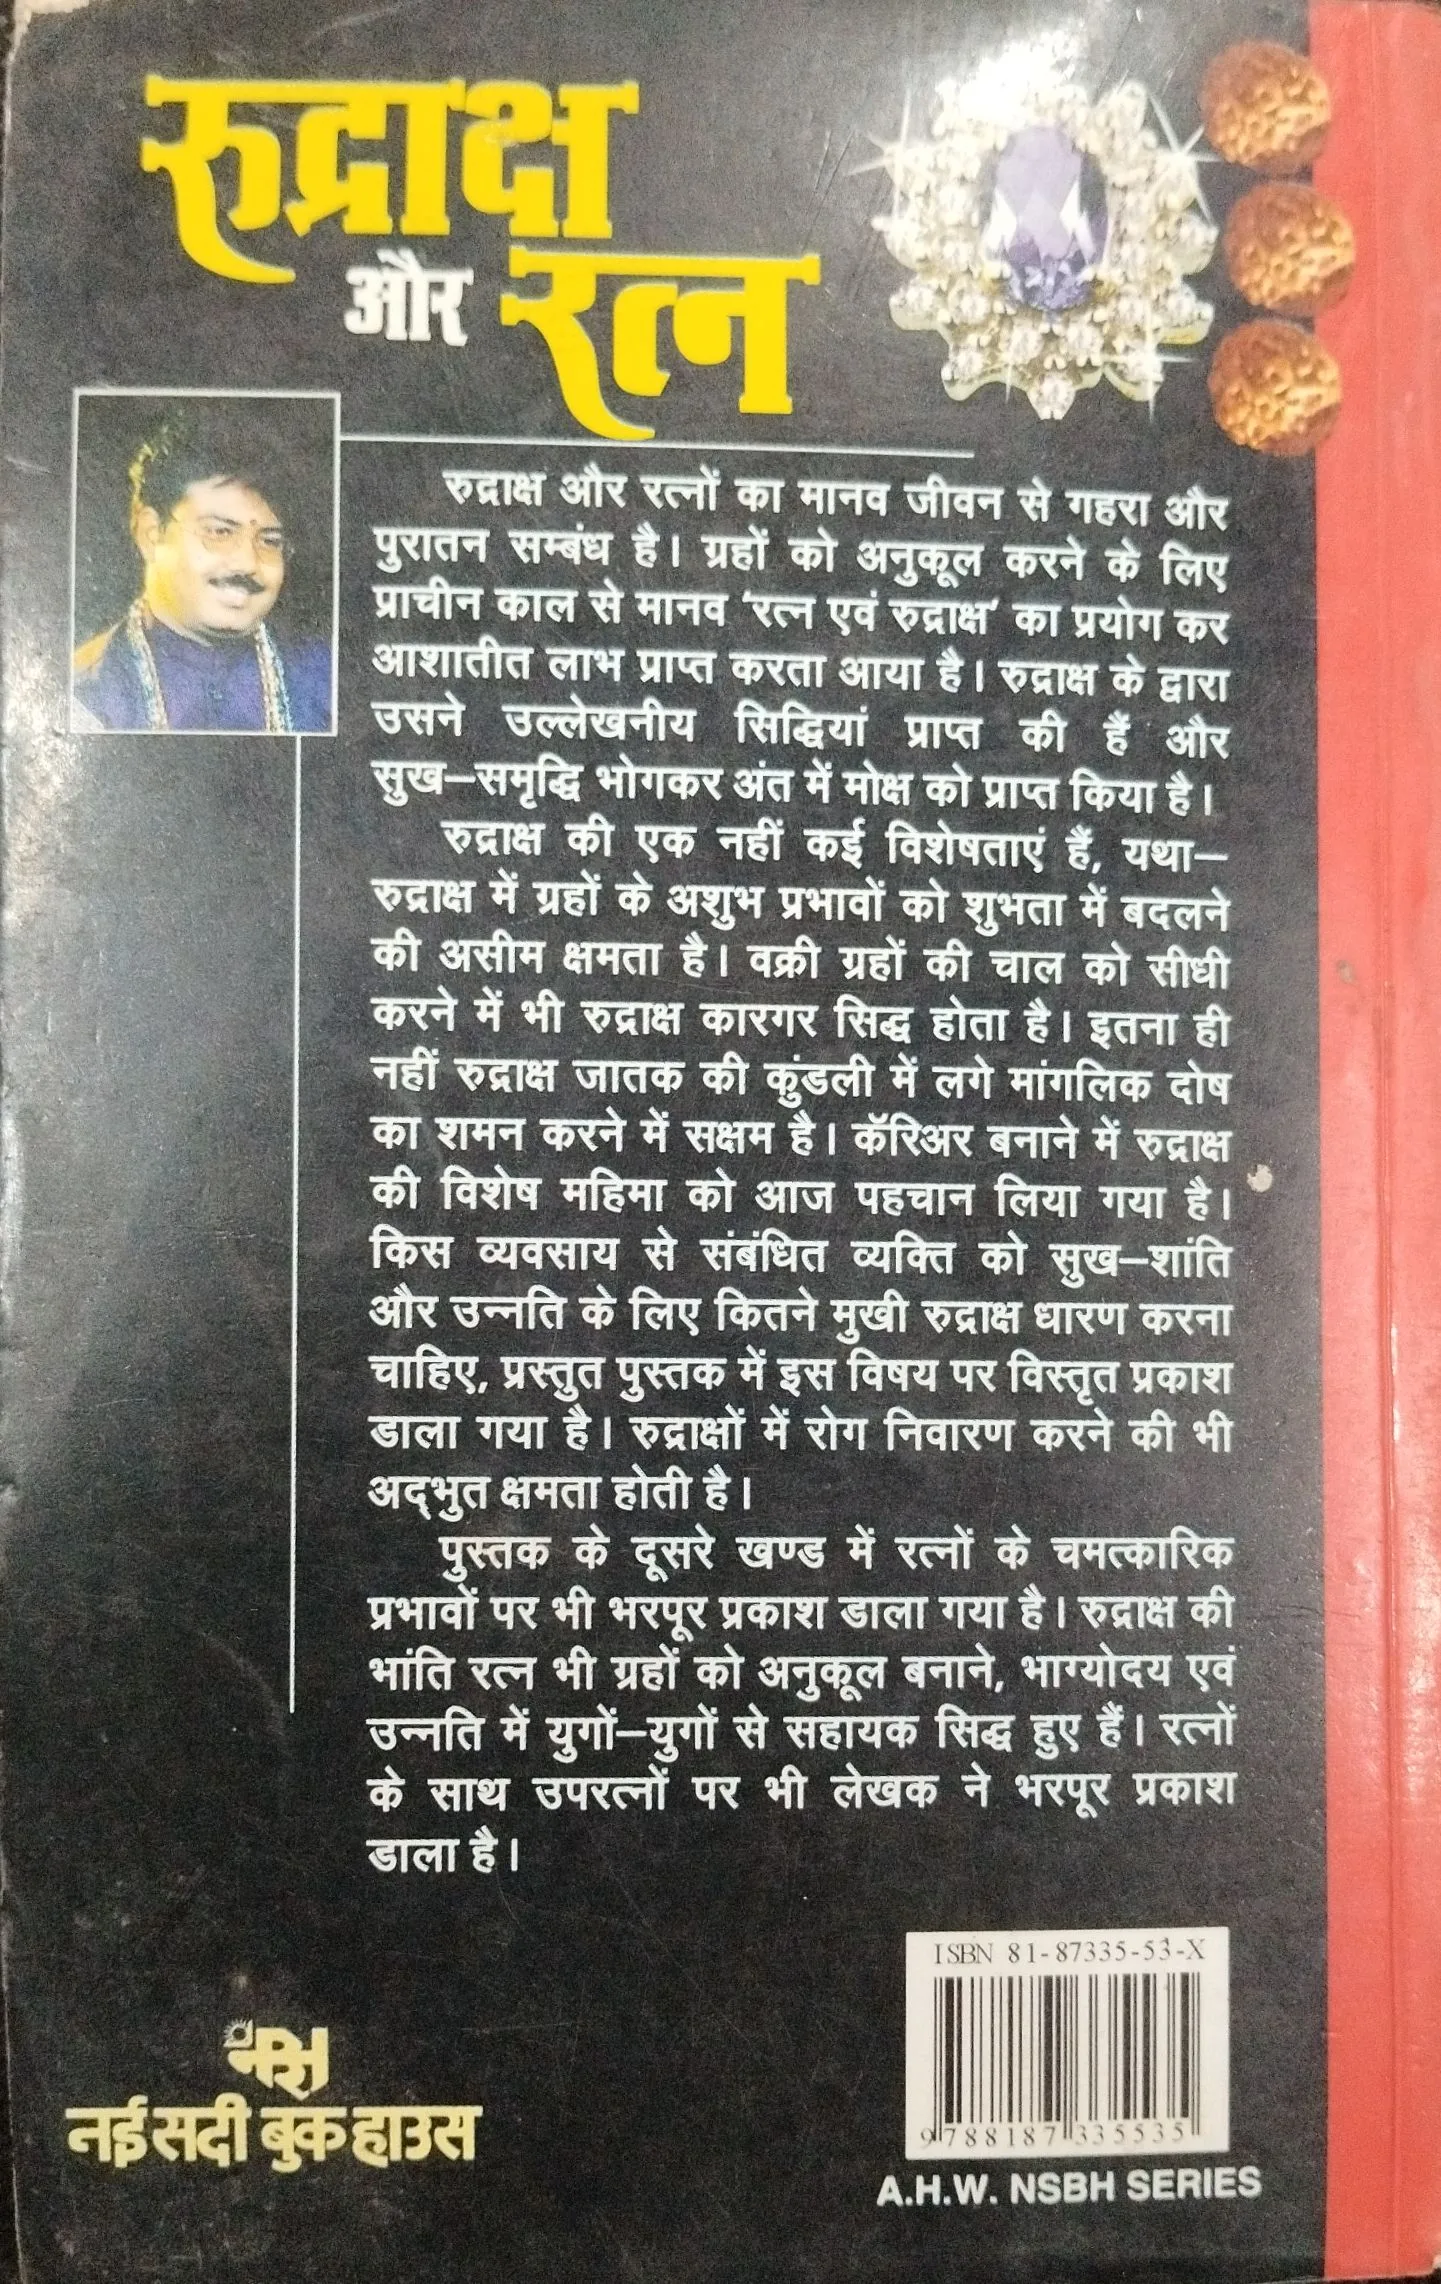 रुद्राक्ष
और रत्न
रुद्राक्ष और रत्नों का मानव जीवन से गहरा और
पुरातन सम्बंध है। ग्रहों को अनुकूल करने के लिए
प्राचीन काल से मानव ‘रत्न एवं रुद्राक्ष’ का प्रयोग कर
आशातीत लाभ प्राप्त करता आया है। रुद्राक्ष के द्वारा
उसने उल्लेखनीय सिद्धियां प्राप्त की हैं और
सुख–समृद्धि भोगकर अंत में मोक्ष को प्राप्त किया है।
रुद्राक्ष की एक नहीं कई विशेषताएं हैं, यथा–
रुद्राक्ष में ग्रहों के अशुभ प्रभावों को शुभता में बदलने
की असीम क्षमता है। वक्री ग्रहों की चाल को सीधी
करने में भी रुद्राक्ष कारगर सिद्ध होता है। इतना ही
नहीं रुद्राक्ष जातक की कुंडली में लगे मांगलिक दोष
का शमन करने में सक्षम है। कॅरिअर बनाने में रुद्राक्ष
की विशेष महिमा को आज पहचान लिया गया है।
किस व्यवसाय से संबंधित व्यक्ति को सुख–शांति
और उन्नति के लिए कितने मुखी रुद्राक्ष धारण करना
चाहिए, प्रस्तुत पुस्तक में इस विषय पर विस्तृत प्रकाश
डाला गया है। रुद्राक्षों में रोग निवारण करने की भी
अद्‌भुत क्षमता होती है।
पुस्तक के दूसरे खण्ड में रत्नों के चमत्कारिक
प्रभावों पर भी भरपूर प्रकाश डाला गया है। रुद्राक्ष की
भांति रत्न भी ग्रहों को अनुकूल बनाने, भाग्योदय एवं
उन्नति में युगों–युगों से सहायक सिद्ध हुए हैं। रत्नों
के साथ उपरत्नों पर भी लेखक ने भरपूर प्रकाश
डाला है।
ISBN 81-87335-53-X
9788187335535
A.H.W. NSBH SERIES
नई सदी बुक हाउस